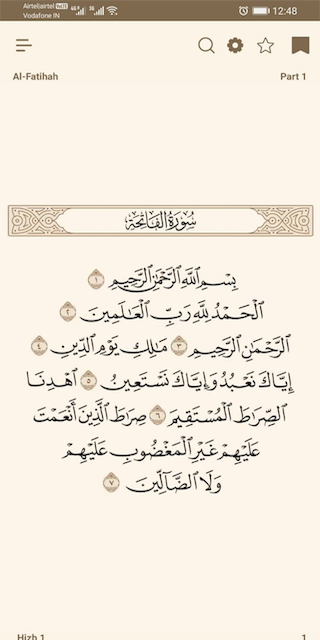 Airtel|airtel VoLTE 4G 3G
Vodafone IN 12:48
Al-Fatihah Part 1
سُورَةُ الفَاتِحَةِ
بِسْمِ ٱللَّهِ ٱلرَّحْمَٰنِ ٱلرَّحِيمِ ١
ٱلْحَمْدُ لِلَّهِ رَبِّ ٱلْعَٰلَمِينَ ٢
ٱلرَّحْمَٰنِ ٱلرَّحِيمِ ٣ مَٰلِكِ يَوْمِ ٱلدِّينِ ٤
إِيَّاكَ نَعْبُدُ وَإِيَّاكَ نَسْتَعِينُ ٥ ٱهْدِنَا
ٱلصِّرَٰطَ ٱلْمُسْتَقِيمَ ٦ صِرَٰطَ ٱلَّذِينَ أَنْعَمْتَ
عَلَيْهِمْ غَيْرِ ٱلْمَغْضُوبِ عَلَيْهِمْ
وَلَا ٱلضَّآلِّينَ ٧
Hizb 1 1